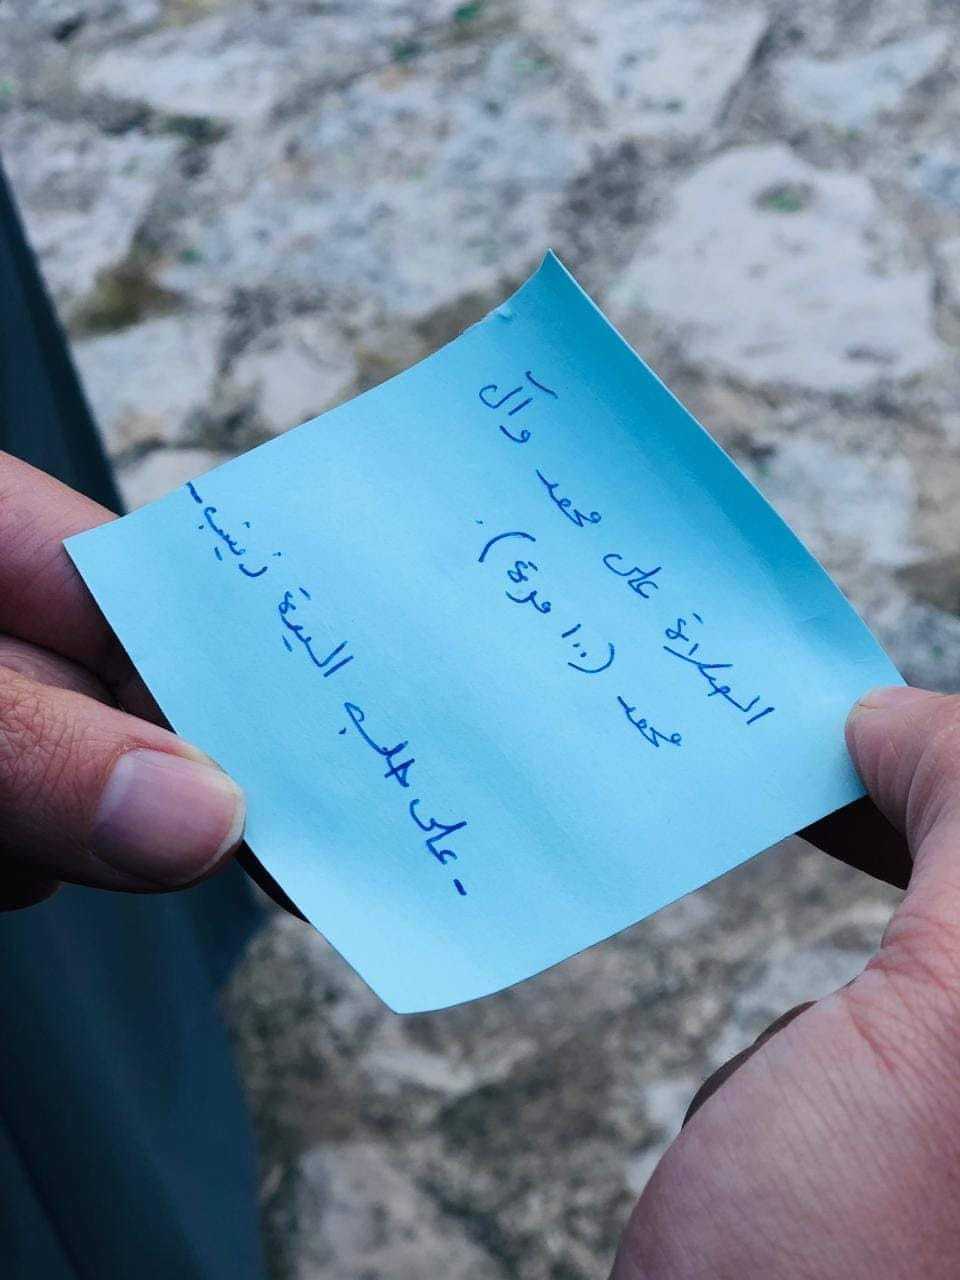 الصلاة على محمد وآل
محمد (١٠٠ مرة).
- على طلب السيدة زينب -